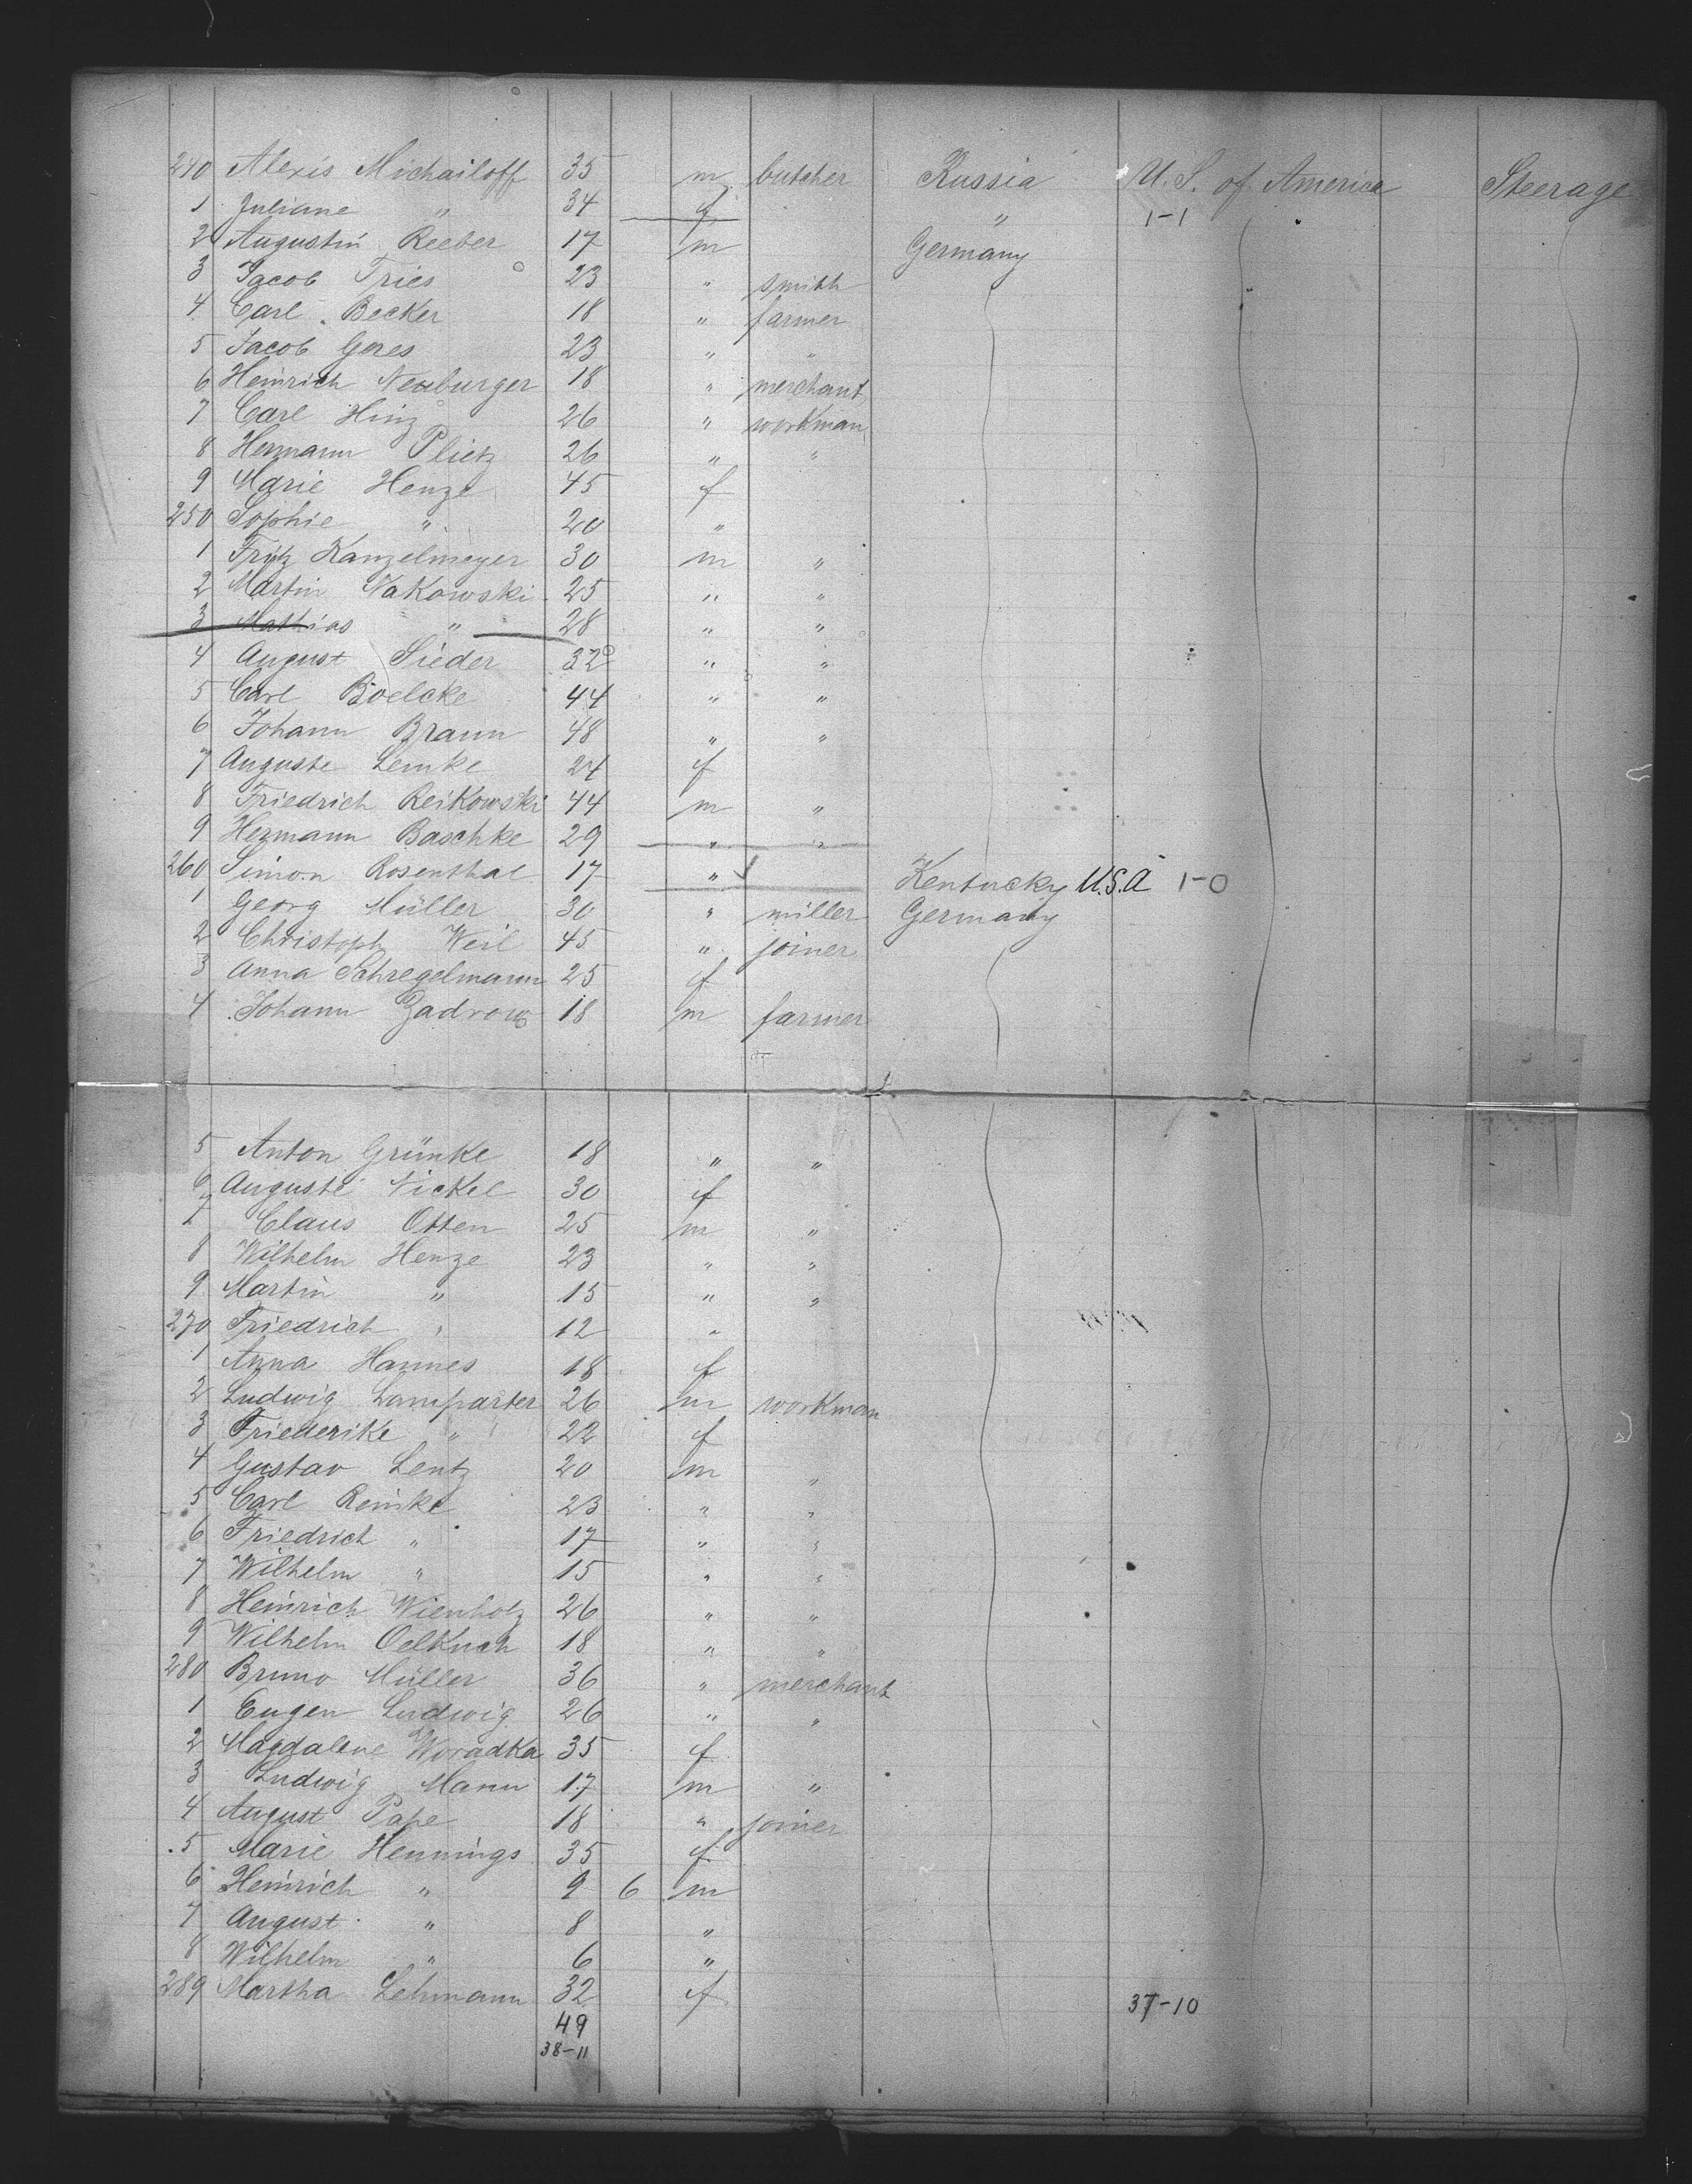 240 Alexis Michailoff 35 m butcher Russia U.S. of America Steerage
1 Juliane " 34 f " 1-1
2 Augustin Reeber 17 m Germany
3 Jacob Fries 23 " smith
4 Carl Becker 18 " farmer
5 Jacob Geres 23 " "
6 Heinrich Neuburger 18 " merchant
7 Carl Hinz 26 " workman
8 Hermann Plietz 26 " "
9 Marie Henze 45 f
250 Sophie " 20 "
1 Fritz Kanzelmeyer 30 m "
2 Martin Nakowski 25 " "
3 Mathias " 28 " "
4 August Sieder 32 " "
5 Carl Boelcke 44 " "
6 Johann Braun 48 " "
7 Auguste Lemke 24 f
8 Friedrich Reikowski 44 m "
9 Hermann Baschke 29 " "
260 Simon Rosenthal 17 " Kentucky U.S.A 1-0
1 Georg Müller 30 " miller Germany
2 Christoph Weil 45 " joiner
3 Anna Schregelmann 25 f
4 Johann Zadrow 18 m farmer
5 Anton Grünke 18 " "
6 Auguste Nickel 30 f
7 Claus Otten 25 m "
8 Wilhelm Henze 23 " "
9 Martin " 15 " "
270 Friedrich " 12 "
1 Anna Hannes 18 f
2 Ludwig Lamparter 26 m workman
3 Friederike " 22 f
4 Gustav Lentz 20 m "
5 Carl Reinke 23 " "
6 Friedrich " 17 " "
7 Wilhelm " 15 " "
8 Heinrich Wienholz 26 " "
9 Wilhelm Oelkuch 18 " "
280 Bruno Müller 36 " merchant
1 Eugen Ludwig 26 " "
2 Magdalene Woradka 35 f
3 Ludwig Mann 17 m "
4 August Pape 18 " joiner
5 Marie Hennings 35 f
6 Heinrich " 9 6 m
7 August " 8 "
8 Wilhelm " 6 "
289 Martha Lehmann 32 f 37-10
49
38-11